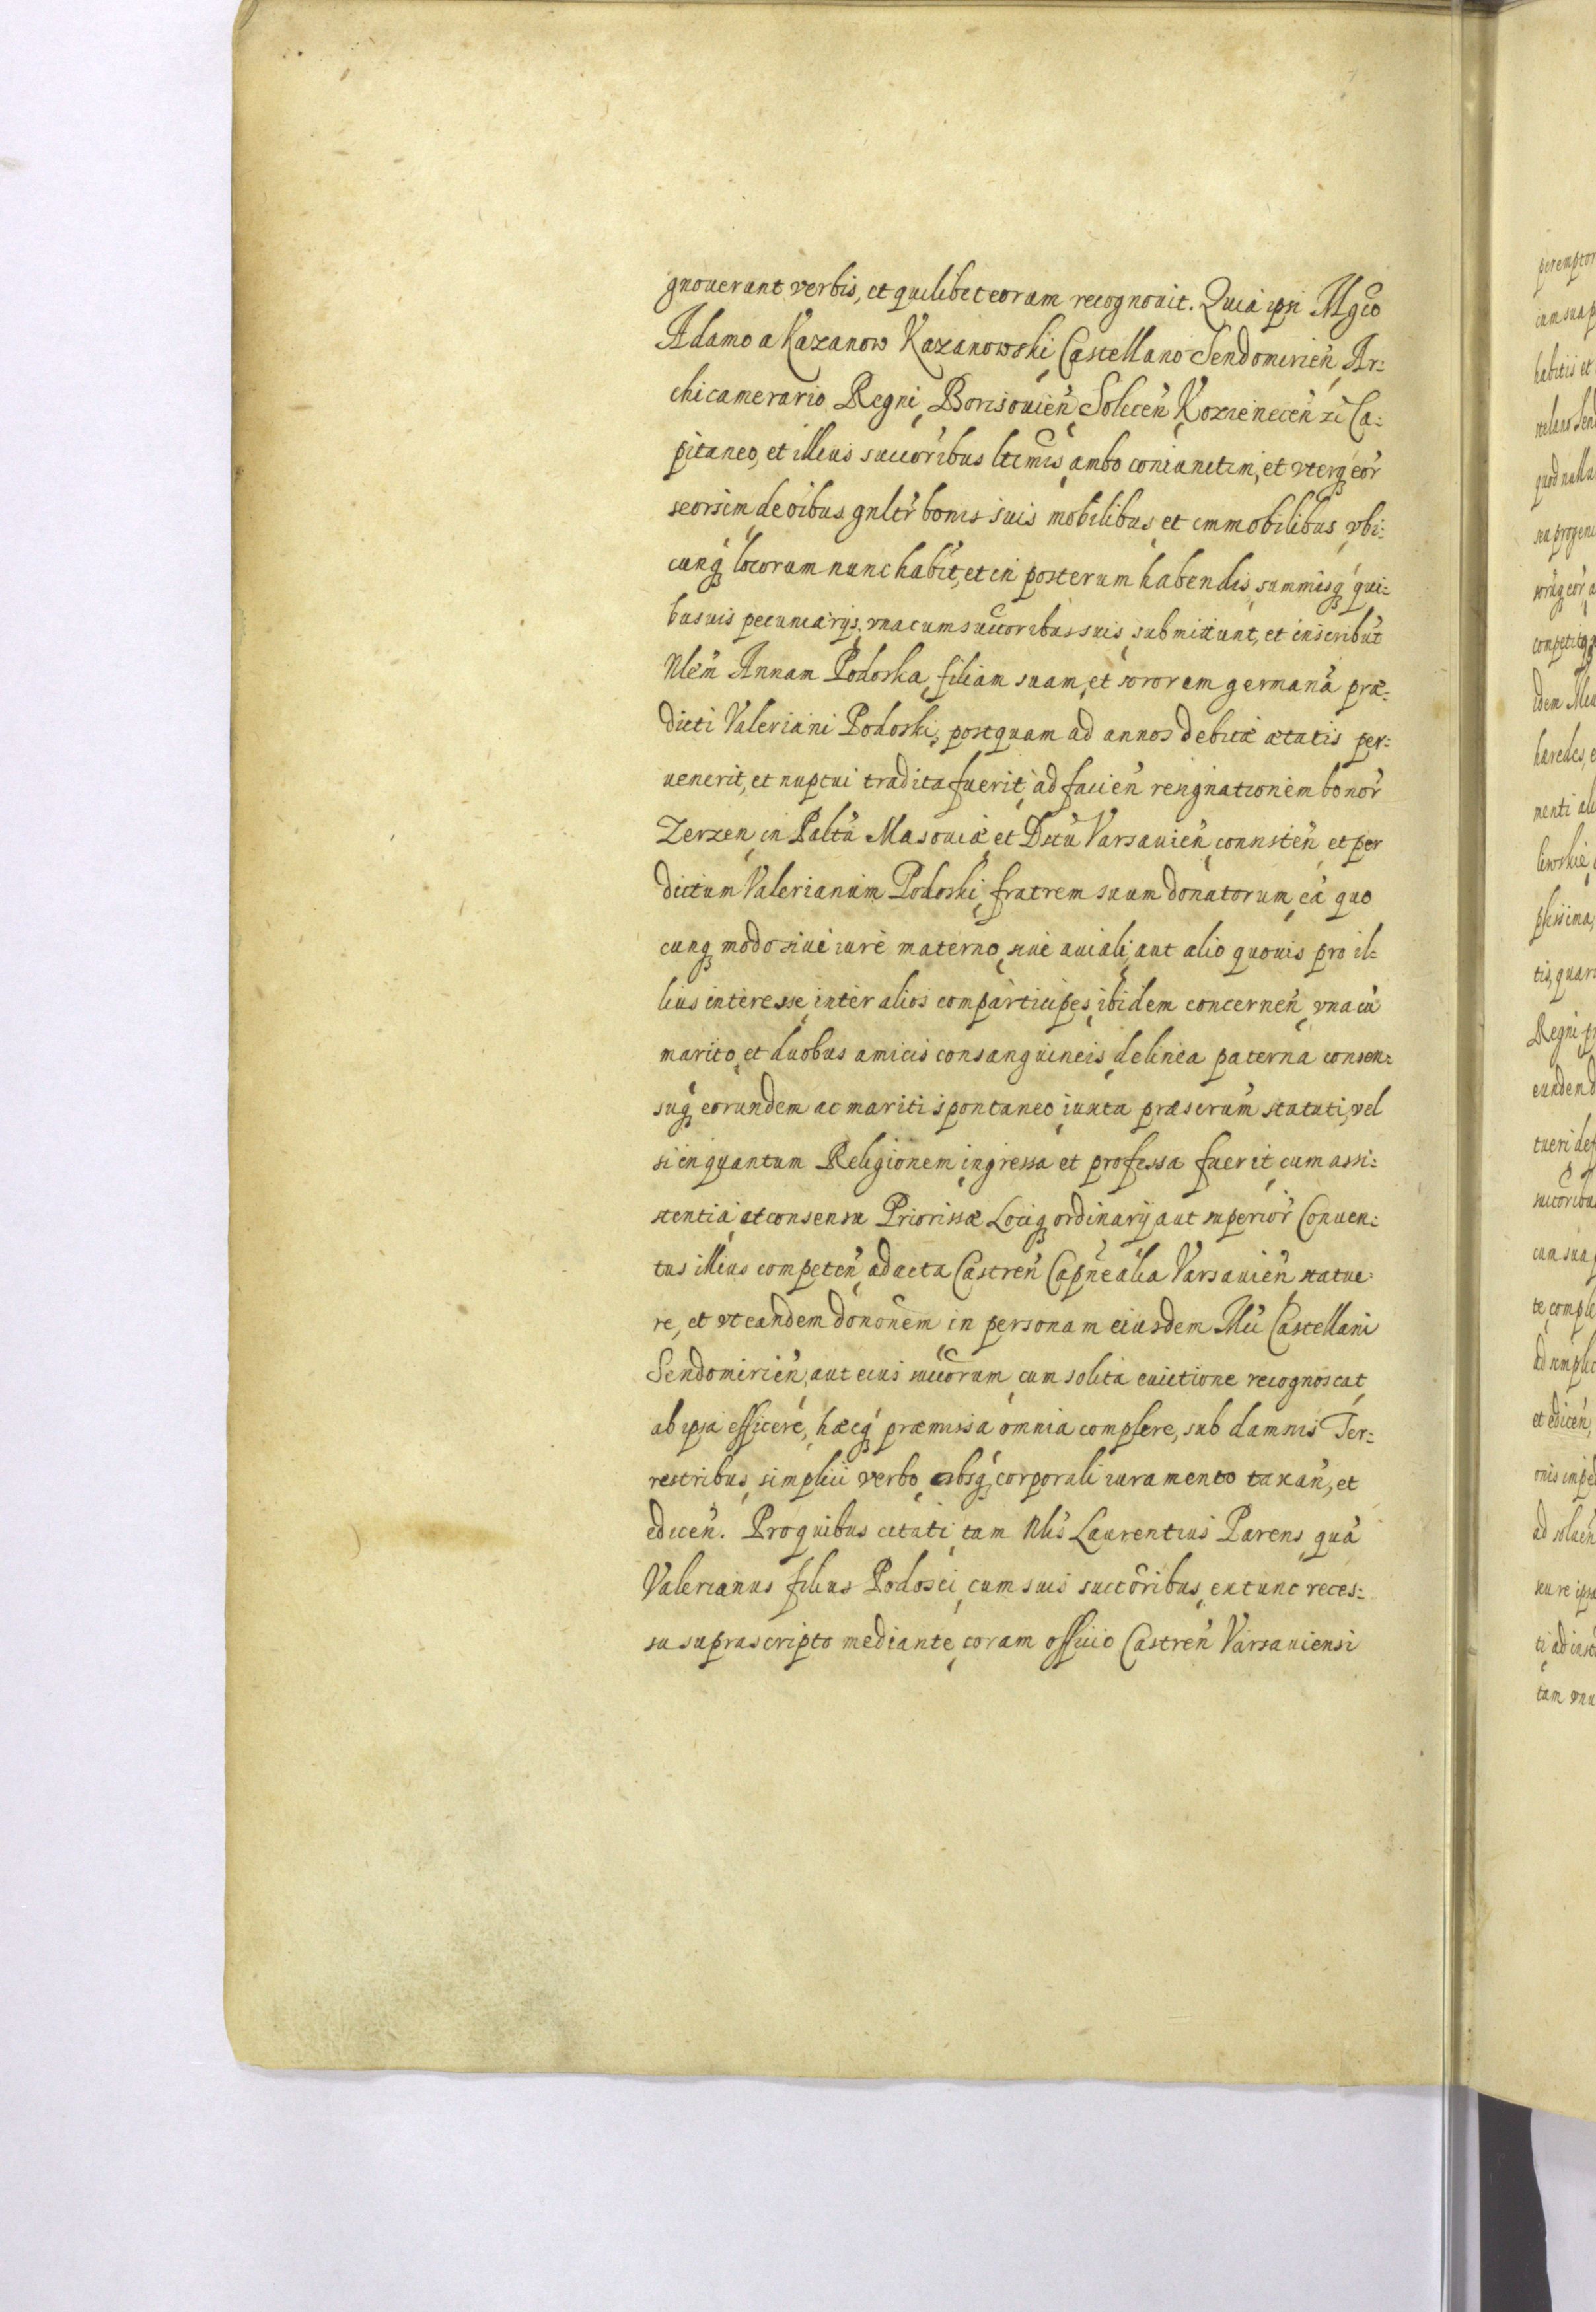 gnouerunt verbis, et quilibet eorum recognouit. Quia ipsi Mgco
Adamo a Kazanow Kazanowski, Castellano Sendomirien, Ar:
chicamerario Regni, Borisouien, Solecen, Kozienecen zc Ca:
pitaneo, et illius succoribus ltimis, ambo coniunctim, et vterq eor
seorsim, de oibus gnltr bonis suis mobilibus, et immobilibus, vbi:
cunq locorum nunc habit, et in posterum habendis, summisq qui:
busuis pecuniarijs, vna cum succoribus suis, submittunt, et inscribut
Nlem Annam Podoska, filiam suam, et sororem germana præ:
dicti Valeriani Podoski, postquam ad annos debitæ ætatis per:
uenerit, et nuptui tradita fuerit, ad facien resignationem bonor
Zerzen, in Paltu Masouiæ, et Dctu Varsauien, connsten, et per
dictum Valerianum Podoski, fratrem suum donatorum, ea quo
cunq modo siue iure materno, siue auiali, aut alio quouis pro il:
lius interesse, inter alios comparticipes, ibidem concernen, vna cu
marito, et duobus amicis consanguineis, de linea paterna consen:
suq eorundem ac mariti spontaneo, iuxta præscrum statuti, vel
si inquantum Religionem, ingressa et professa fuerit, cum assi:
stentia, et consensu Priorissæ Lociq ordinarij aut superior Conuen:
tus illius competen, ad acta Castren Capnealia Varsauien statue:
re, et vt eandem dononem in personam eiusdem Mci Castellani
Sendomirien, aut eius succorum, cum solita euictione recognoscat,
ab ipsa efficere, hæcq præmissa omnia complere, sub damnis Ter:
restribus, simplici verbo, absq corporali iuramento taxan, et
edicen. Pro quibus citati, tam Nlis Laurentius Parens, qua
Valerianus filius Podosci, cum suis succoribus, extunc reces:
su suprascripto mediante, coram officio Castren Varsauiensi
peremptor
cum sua p
habitis et
stelano Sen
quod nulla
sua progeni
haredes, e
menti ali
plissima,
tis, quar
Regni
eundem d
tueri def
succoribu
cum sua p
te, comple
ad simplic
et edicen,
onis impe
ad soluen
seu re ipsa
ti, ad inst
tam vnu